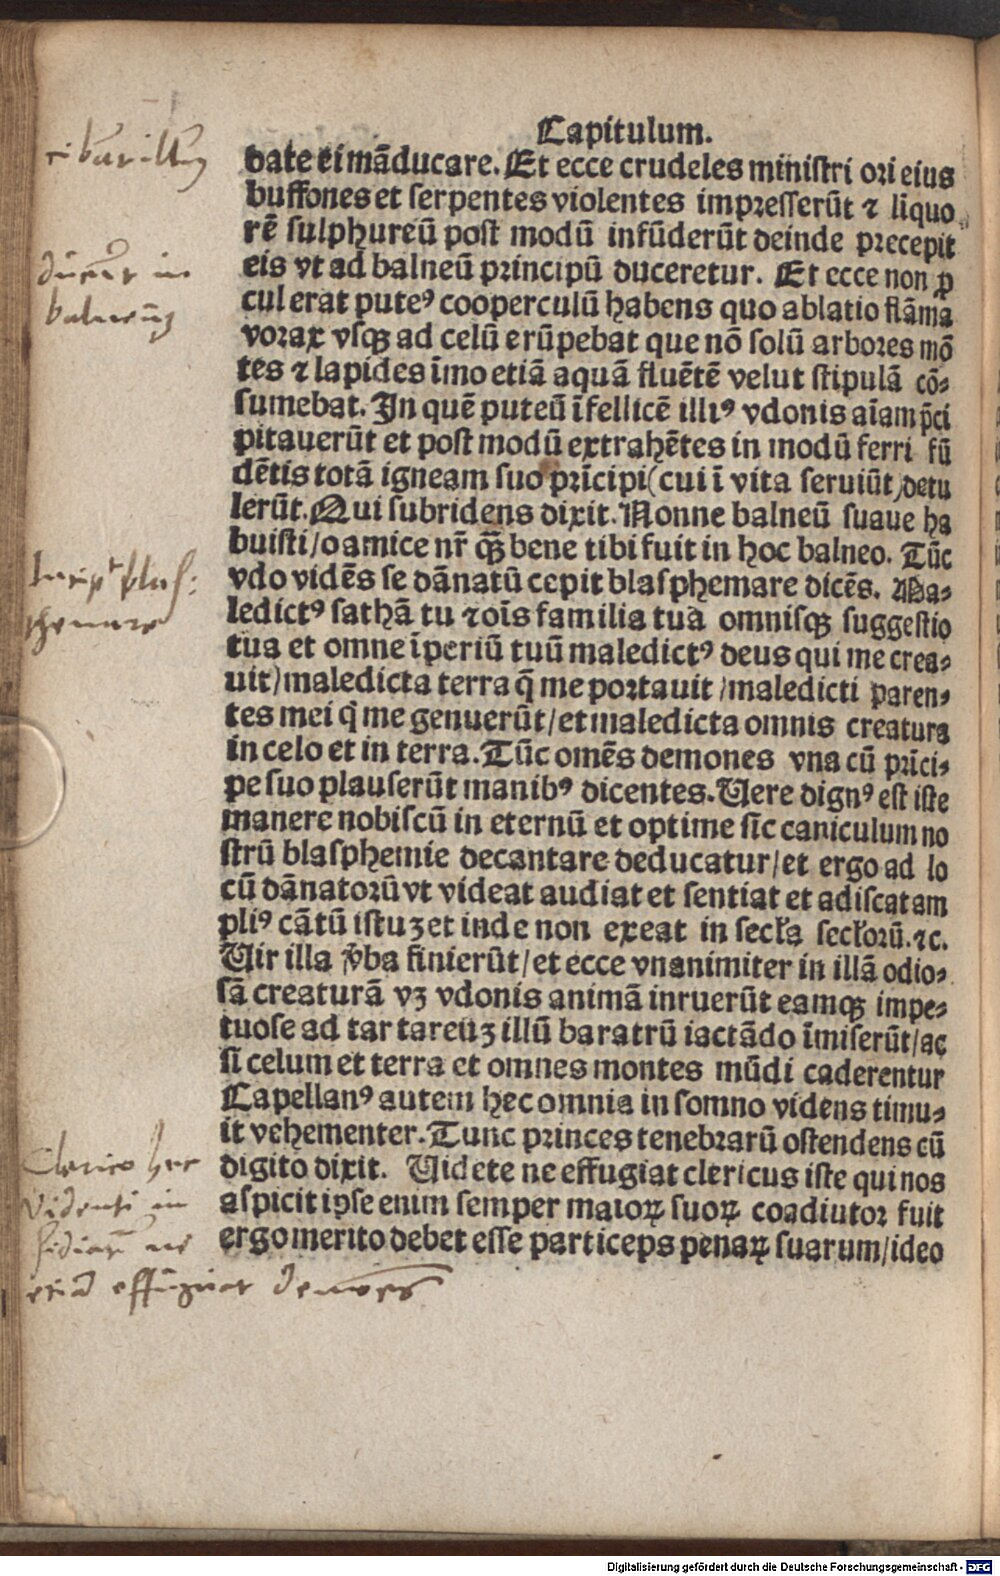 Capitulum.
date ei māducare. Et ecce crudeles miniſtri ori eius
buffones et ſerpentes violentes impreſſerūt ⁊ liquo
rē ſulphureū poſt modū infūderūt deinde precepit
eis vt ad balneū principū duceretur. Et ecce non ꝓ
cul erat puteꝰ cooperculū habens quo ablatio flāma
vorax vſqꝫ ad celū erūpebat que nō ſolū arbores mō
tes ⁊ lapides īmo etiā aquā fluētē velut ſtipulā cō⸗
ſumebat. In quē puteū īfellicē illiꝰ vdonis aīam p̄ci
pitauerūt et poſt modū extrahētes in modū ferri fū
dētis totā igneam ſuo prīcipi (cui ī vita ſeruiūt) detu
lerūt. Qui ſubridens dixit. Nonne balneū ſuaue ha
buiſti/ o amice nr̄ qꝫ̄ bene tibi fuit in hoc balneo. Tūc
vdo vidēs ſe dānatū cepit blaſphemare dicēs. Ma⸗
ledictꝰ ſathā tu ⁊ oīs familia tua omniſqꝫ ſuggeſtio
tua et omne īperiū tuū maledictꝰ deus qui me crea⸗
uit/ maledicta terra q̄ me portauit / maledicti paren⸗
tes mei q̇ me genuerūt/ et maledicta omnis creatura
in celo et in terra. Tūc omēs demones vna cū prīci⸗
pe ſuo plauſerūt manibꝰ dicentes. Uere dignꝰ eſt iſte
manere nobiſcū in eternū et optime ſīc caniculum no
ſtrū blaſphemie decantare deducatur/ et ergo ad lo
cū dānatorū vt videat audiat et ſentiat et adiſcat am
pliꝰ cātū iſtuꝫ et inde non exeat in ſecła ſecłorū. ⁊c.
Uir illa v̄ba finierūt/ et ecce vnanimiter in illā odio⸗
ſā creaturā vꝫ vdonis animā inruerūt eamqꝫ impe⸗
tuoſe ad tartareuꝫ illū baratrū iactādo īmiſerūt/ ac
ſi celum et terra et omnes montes mūdi caderentur
Capellanꝰ autem hec omnia in ſomno videns timu⸗
it vehementer. Tunc princes tenebrarū oſtendens cū
digito dixit. Uidete ne effugiat clericus iſte qui nos
aſpicit ipſe enim ſemper maioꝝ ſuoꝝ coadiutor fuit
ergo merito debet eſſe particeps penaꝝ ſuarum/ ideo
cibār illūꝫ
ducūt in
balneūꝫ
Incipᵗ blaſ:
phemare
Clerico hec
videnti in
ſidiātʳ ne
effugiat demones
Digitalisierung gefördert durch die Deutsche Forschungsgemeinschaft - DFG